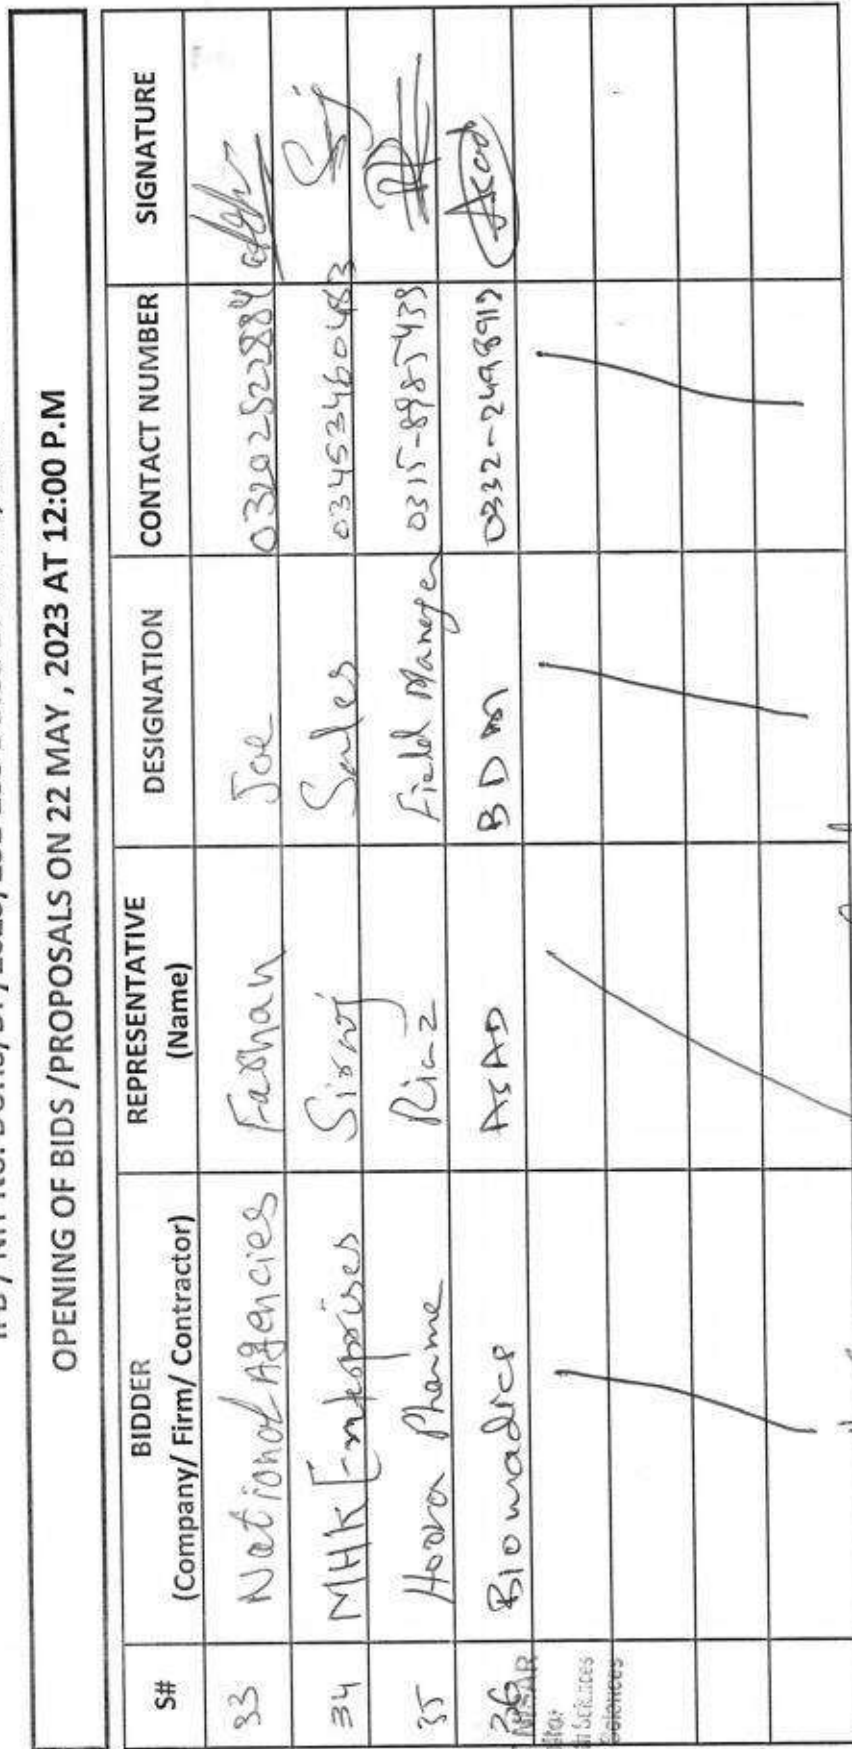 OPENING OF BIDS /PROPOSALS ON 22 MAY, 2023 AT 12:00 P.M
S# BIDDER (Company/ Firm/ Contractor) REPRESENTATIVE (Name) DESIGNATION CONTACT NUMBER SIGNATURE
33 National Agencies Farhan Joe 03202522884
34 MHK Enterprises Siraj Sales 03453460483
35 Hoora Pharme Riaz Field Manager 0315-8985439
36 Biomadics ASAD BDM 0332-2498919 Asad